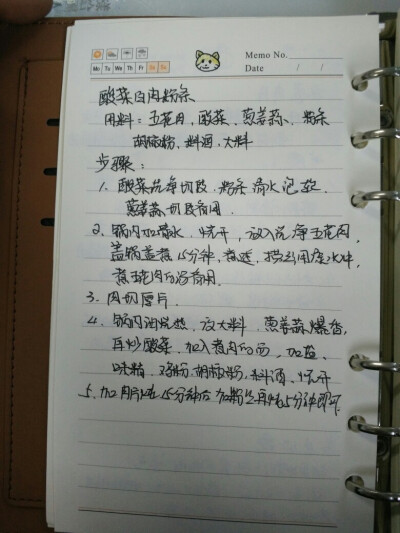 Memo No.
Mo Tu We Th Fr Sa Su
Date / /
酸菜白肉粉条
用料：五花肉、酸菜、葱姜蒜、粉条
胡椒粉、料酒、大料
步骤：
1、酸菜洗净切段，粉条清水泡软，
葱姜蒜切段备用．
2、锅内加清水，烧开，放入洗净五花肉，
盖锅盖煮15分钟，煮透，捞出用凉水冲，
煮花肉的汤备用．
3、肉切厚片．
4、锅内油烧热，放大料、葱姜蒜爆香，
再炒酸菜，加入煮肉的汤，加盐、
味精、鸡粉、胡椒粉、料酒、烧开
5、加肉片炖15分钟后加粉丝再炖5分钟即可